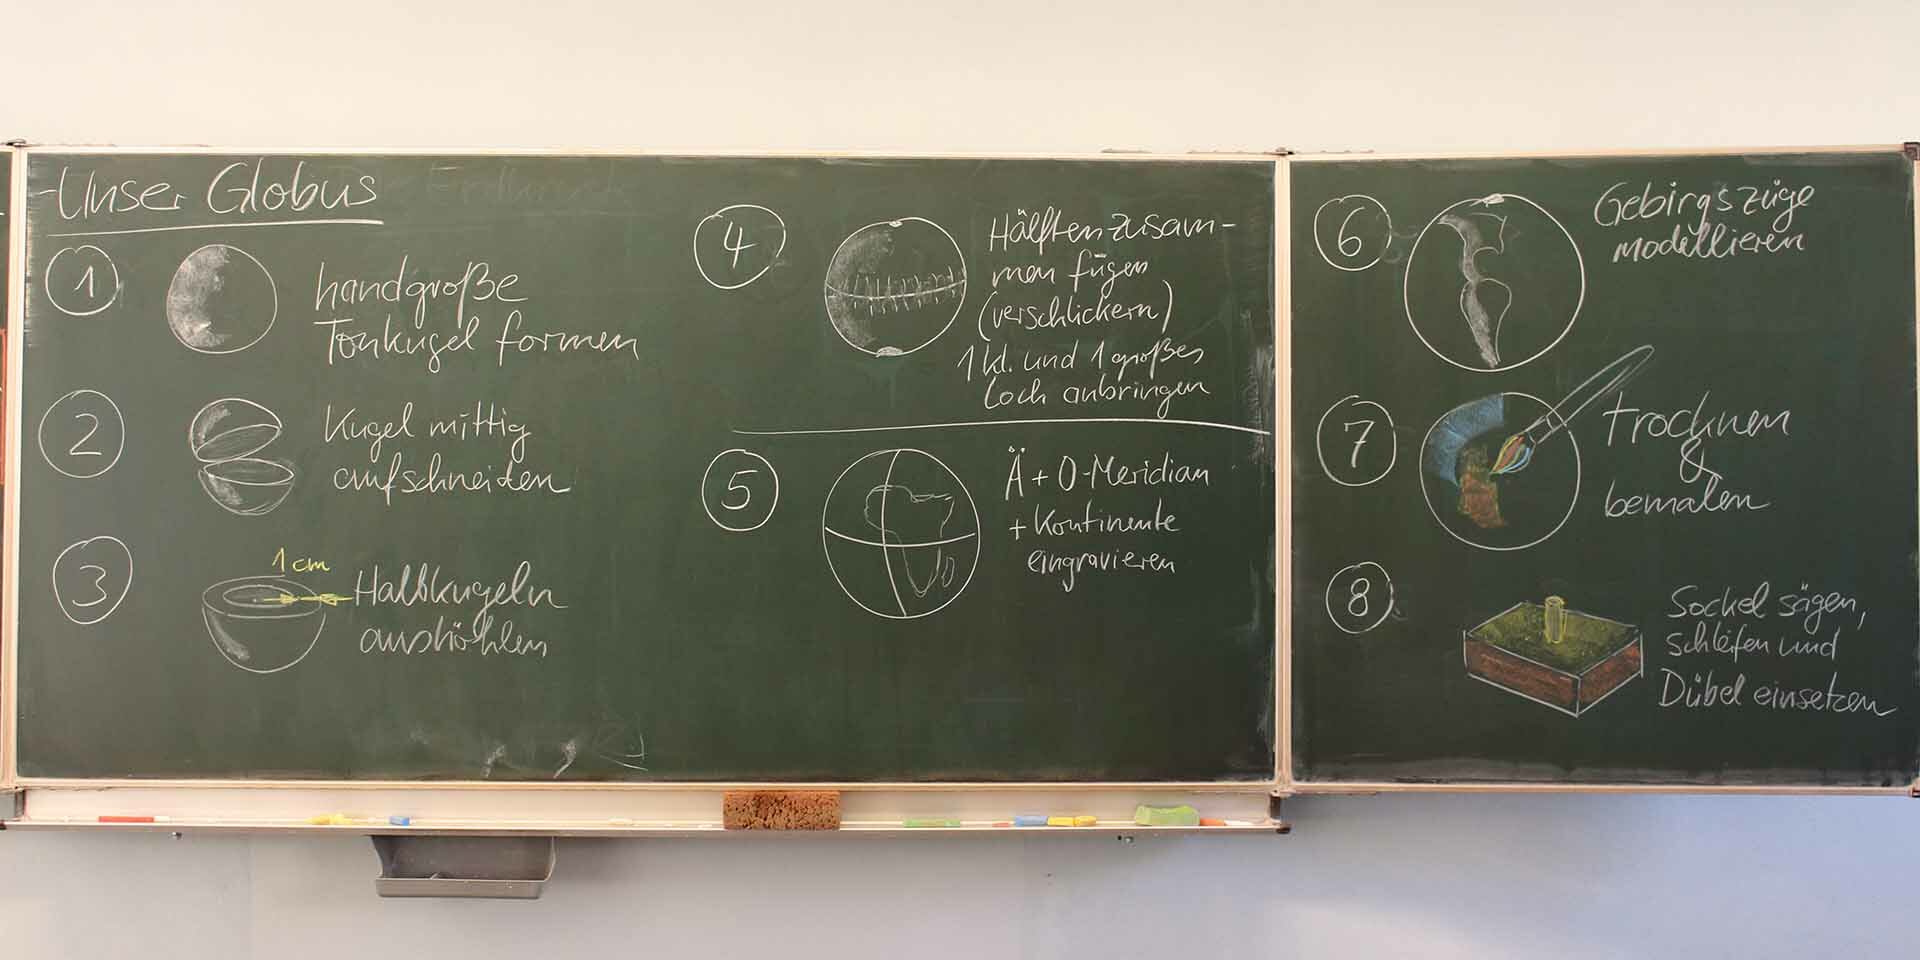 Unser Globus
1
handgroße
Tonkugel formen
2
Kugel mittig
aufschneiden
3
1cm
Halbkugeln
aushöhlen
4
Hälften zusam-
men fügen
(verschlickern)
1 kl. und 1 großes
Loch anbringen
5
Ä + 0-Meridian
+ Kontinente
eingravieren
6
Gebirgszüge
modellieren
7
trocknen
&
bemalen
8
Sockel sägen,
schleifen und
Dübel einsetzen